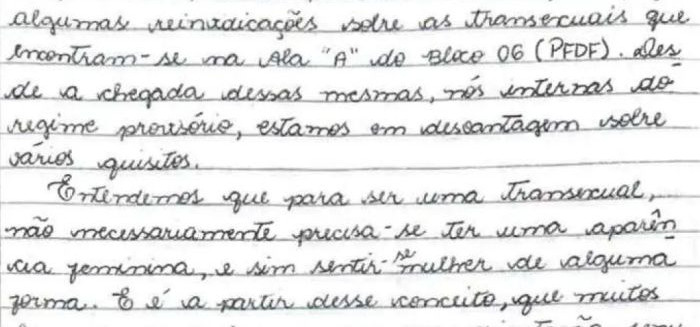 algumas reinvidicações sobre as transexuais que
encontram-se na Ala "A" do Bloco 06 (PFDF). Des
de a chegada dessas mesmas, nós internas do
regime provisório, estamos em desvantagem sobre
vários quisitos.
Entendemos que para ser uma transexual,
não necessariamente precisa-se ter uma aparên
cia feminina, e sim sentir-se mulher de alguma
forma. E é a partir desse conceito, que muitos